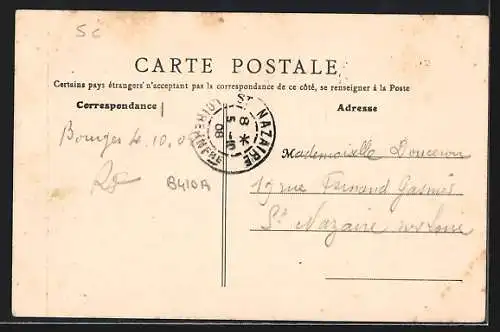 5c
CARTE POSTALE
Certains pays étrangers n'acceptent pas la correspondance de ce côté, se renseigner à la Poste
Correspondance
Adresse
ST NAZAIRE
8 *
5-10
08
Bourges 4.10.0
Mademoiselle
B410A
19 rue Fernand
St Nazaire sur Loire